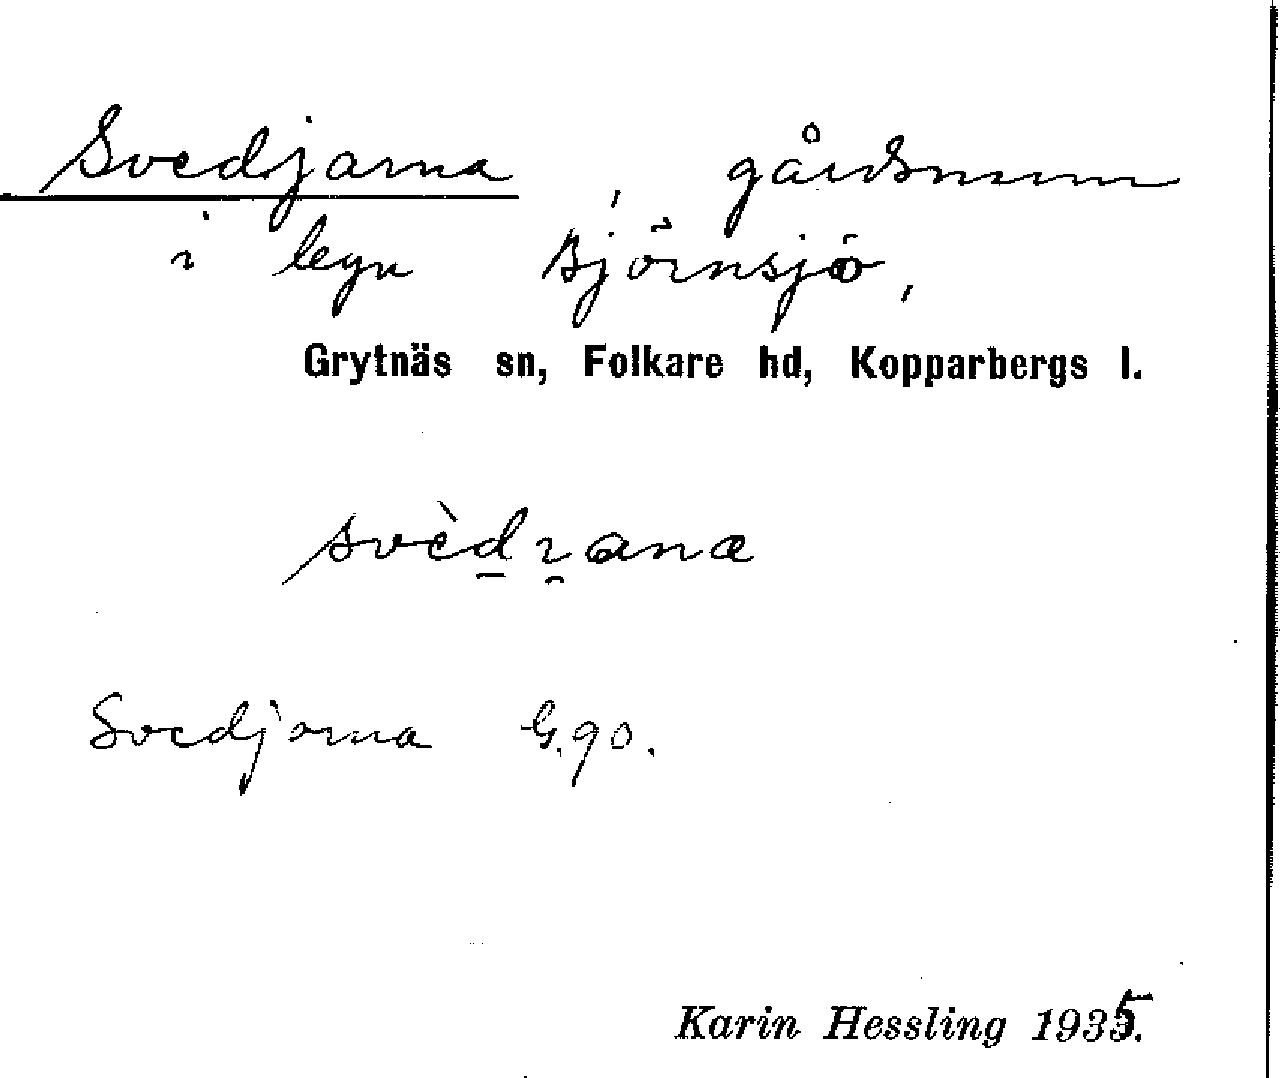 Svedjarna, gårdsnamn
i byn Björnsjö,
Grytnäs sn, Folkare hd, Kopparbergs l.
svèd̠ɿ̯ana
Svedjorna G.90.
Karin Hessling 1935.